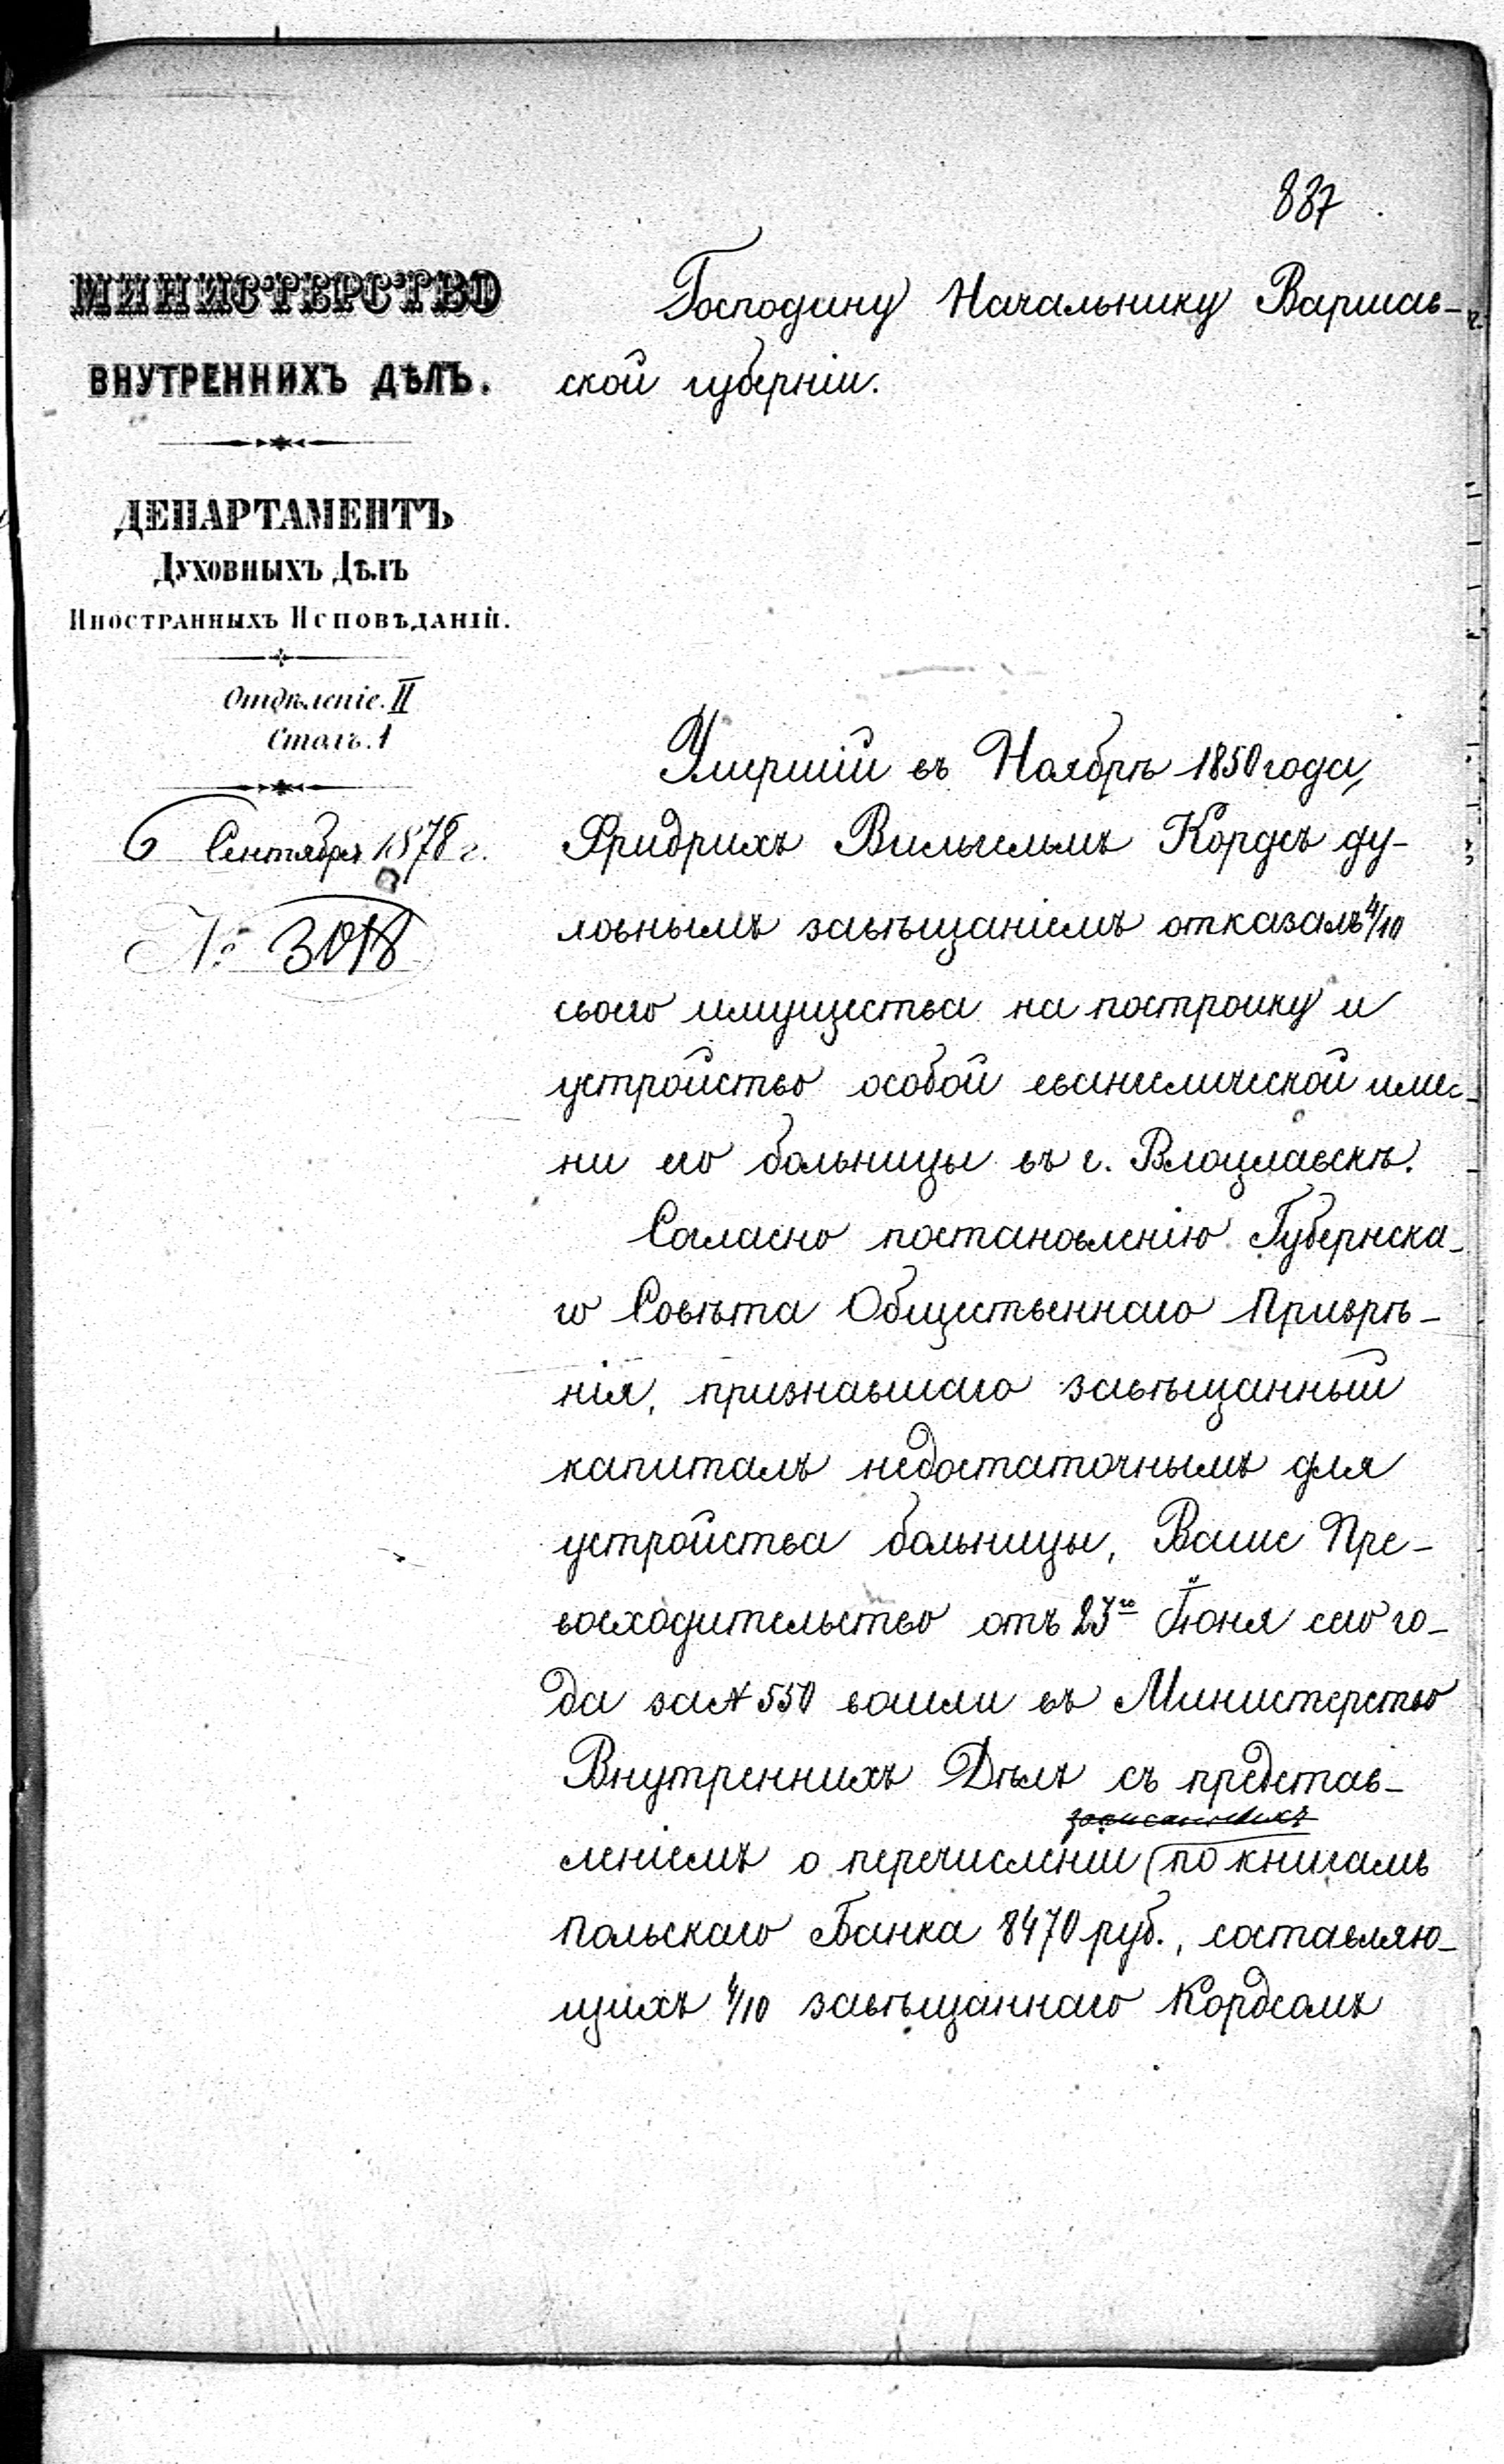 887
МИНИСТЕРСТВО
ВНУТРЕННИХЪ ДѢЛЪ.
ДЕПАРТАМЕНТЪ
Духовныхъ Дѣлъ
Иностранныхъ Исповѣданій.
Отдѣленіе. II
Столъ. 1
6 Сентября 1878 г.
№ 3018
Господину Начальнику Варшав-
ской губерніи.
Умершій въ Ноябрѣ 1850 года,
Фридрихъ Вильгельмъ Кордсъ ду-
ховнымъ завѣщаніемъ отказалъ 4/10
своего имущества на постройку и
устройство особой евангелической име-
ни его больницы въ г. Влоцлавскѣ.
Согласно постановленію Губернска-
го Совѣта Общественнаго Призрѣ-
нія, признавшаго завѣщанный
капиталъ недостаточнымъ для
устройства больницы, Ваше Пре-
восходительство отъ 23го Іюня сего го-
да за № 550 вошли въ Министерство
Внутреннихъ Дѣлъ съ представ-
записанныхъ
леніемъ о перечисленіи (по книгамъ
Польскаго Банка 8470 руб., составляю-
щихъ 4/10 завѣщаннаго Кордсомъ